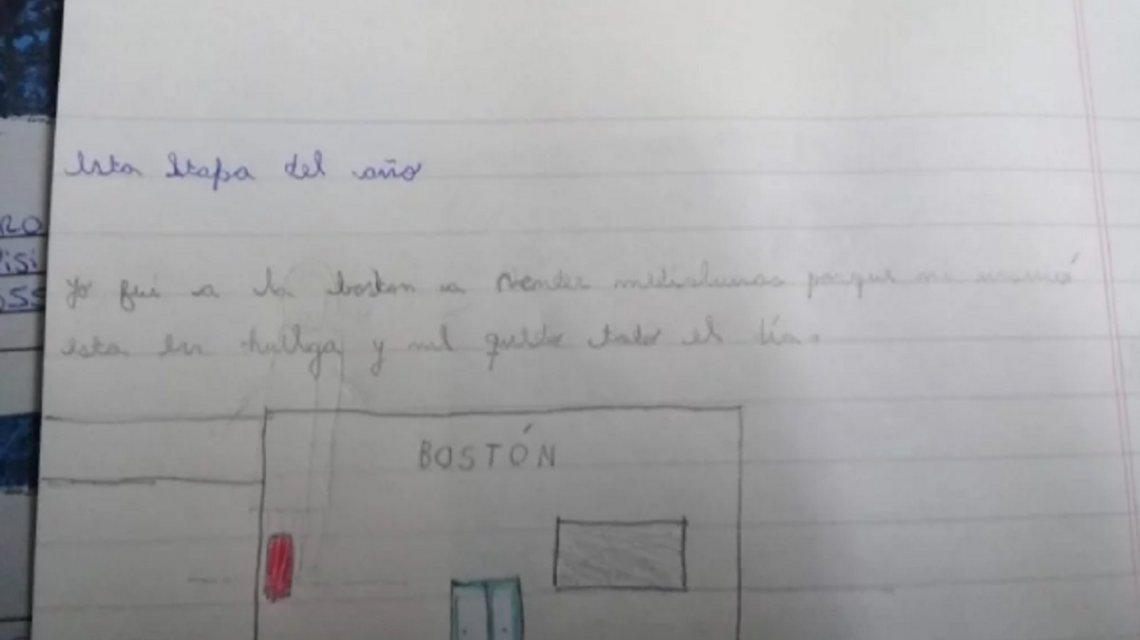 Esta Etapa del año
Yo fui a la boston a vender medialunas porque mi mamá
esta en huelga y me quede todo el día.
BOSTÓN
RO
ISI
OSS